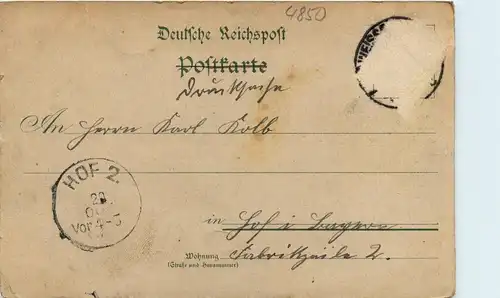 4850
Deutsche Reichspost
Postkarte
Drucksache
An Herrn Karl Kolb
HOF 2.
Vor 4-5
in Hof i Bayern
Wohnung Fabrikzeile 2.
(Straße und Hausnummer)